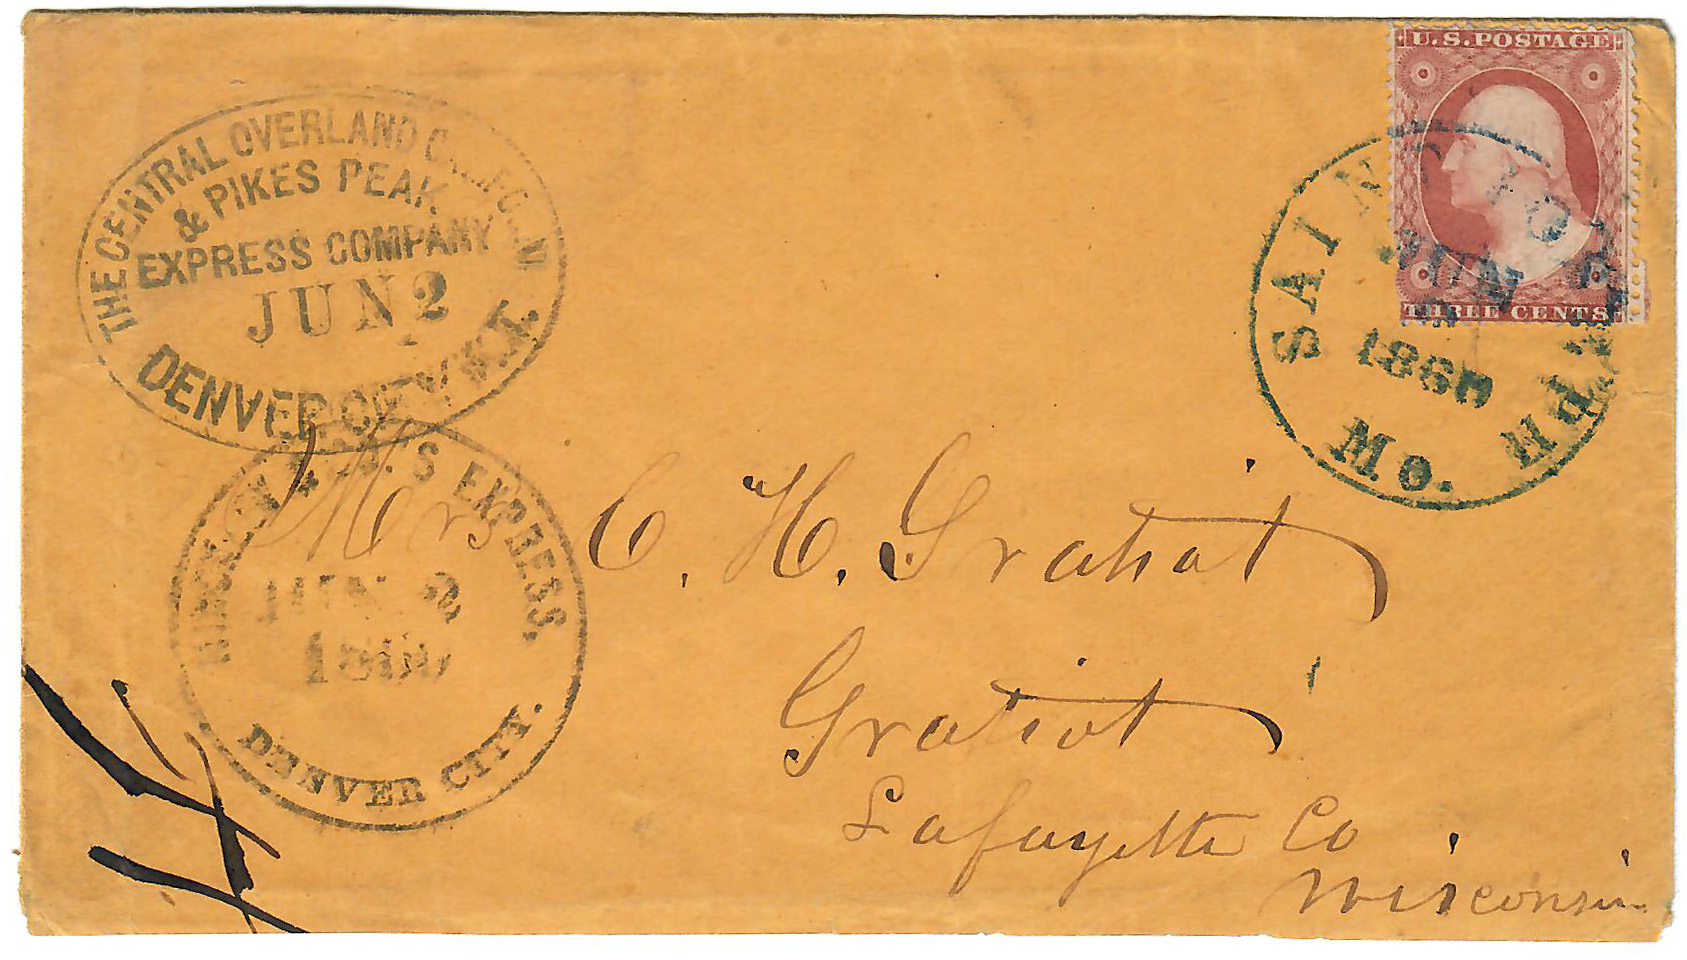 THE CENTRAL OVERLAND CALIFORNIA
& PIKES PEAK
EXPRESS COMPANY
JUN 2
DENVER CITY K.T.
U.S. POSTAGE
THREE CENTS
SAINT JOSEPH
JUN
1860
Mo.
HINCKLEY & CO'S EXPRESS.
JUN 2
1860
DENVER CITY.
C. H. Gratiot
Gratiot
Lafayette Co
Wisconsin